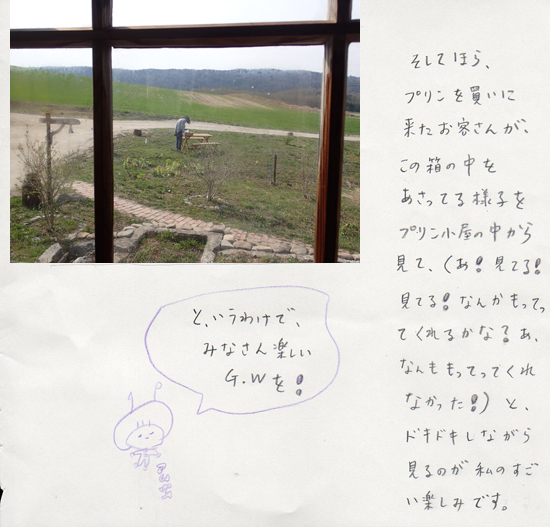 そしてほら、
プリンを買いに
来たお客さんが、
この箱の中を
あさってる様子を
プリン小屋の中から
見て、(あ!見てる!
見てる!なんかもってっ
てくれるかな?あ、
なんももってってくれ
なかった!)と、
ドキドキしながら
見るのが私のすご
い楽しみです。
と、いうわけで、
みなさん楽しい
G.Wを!